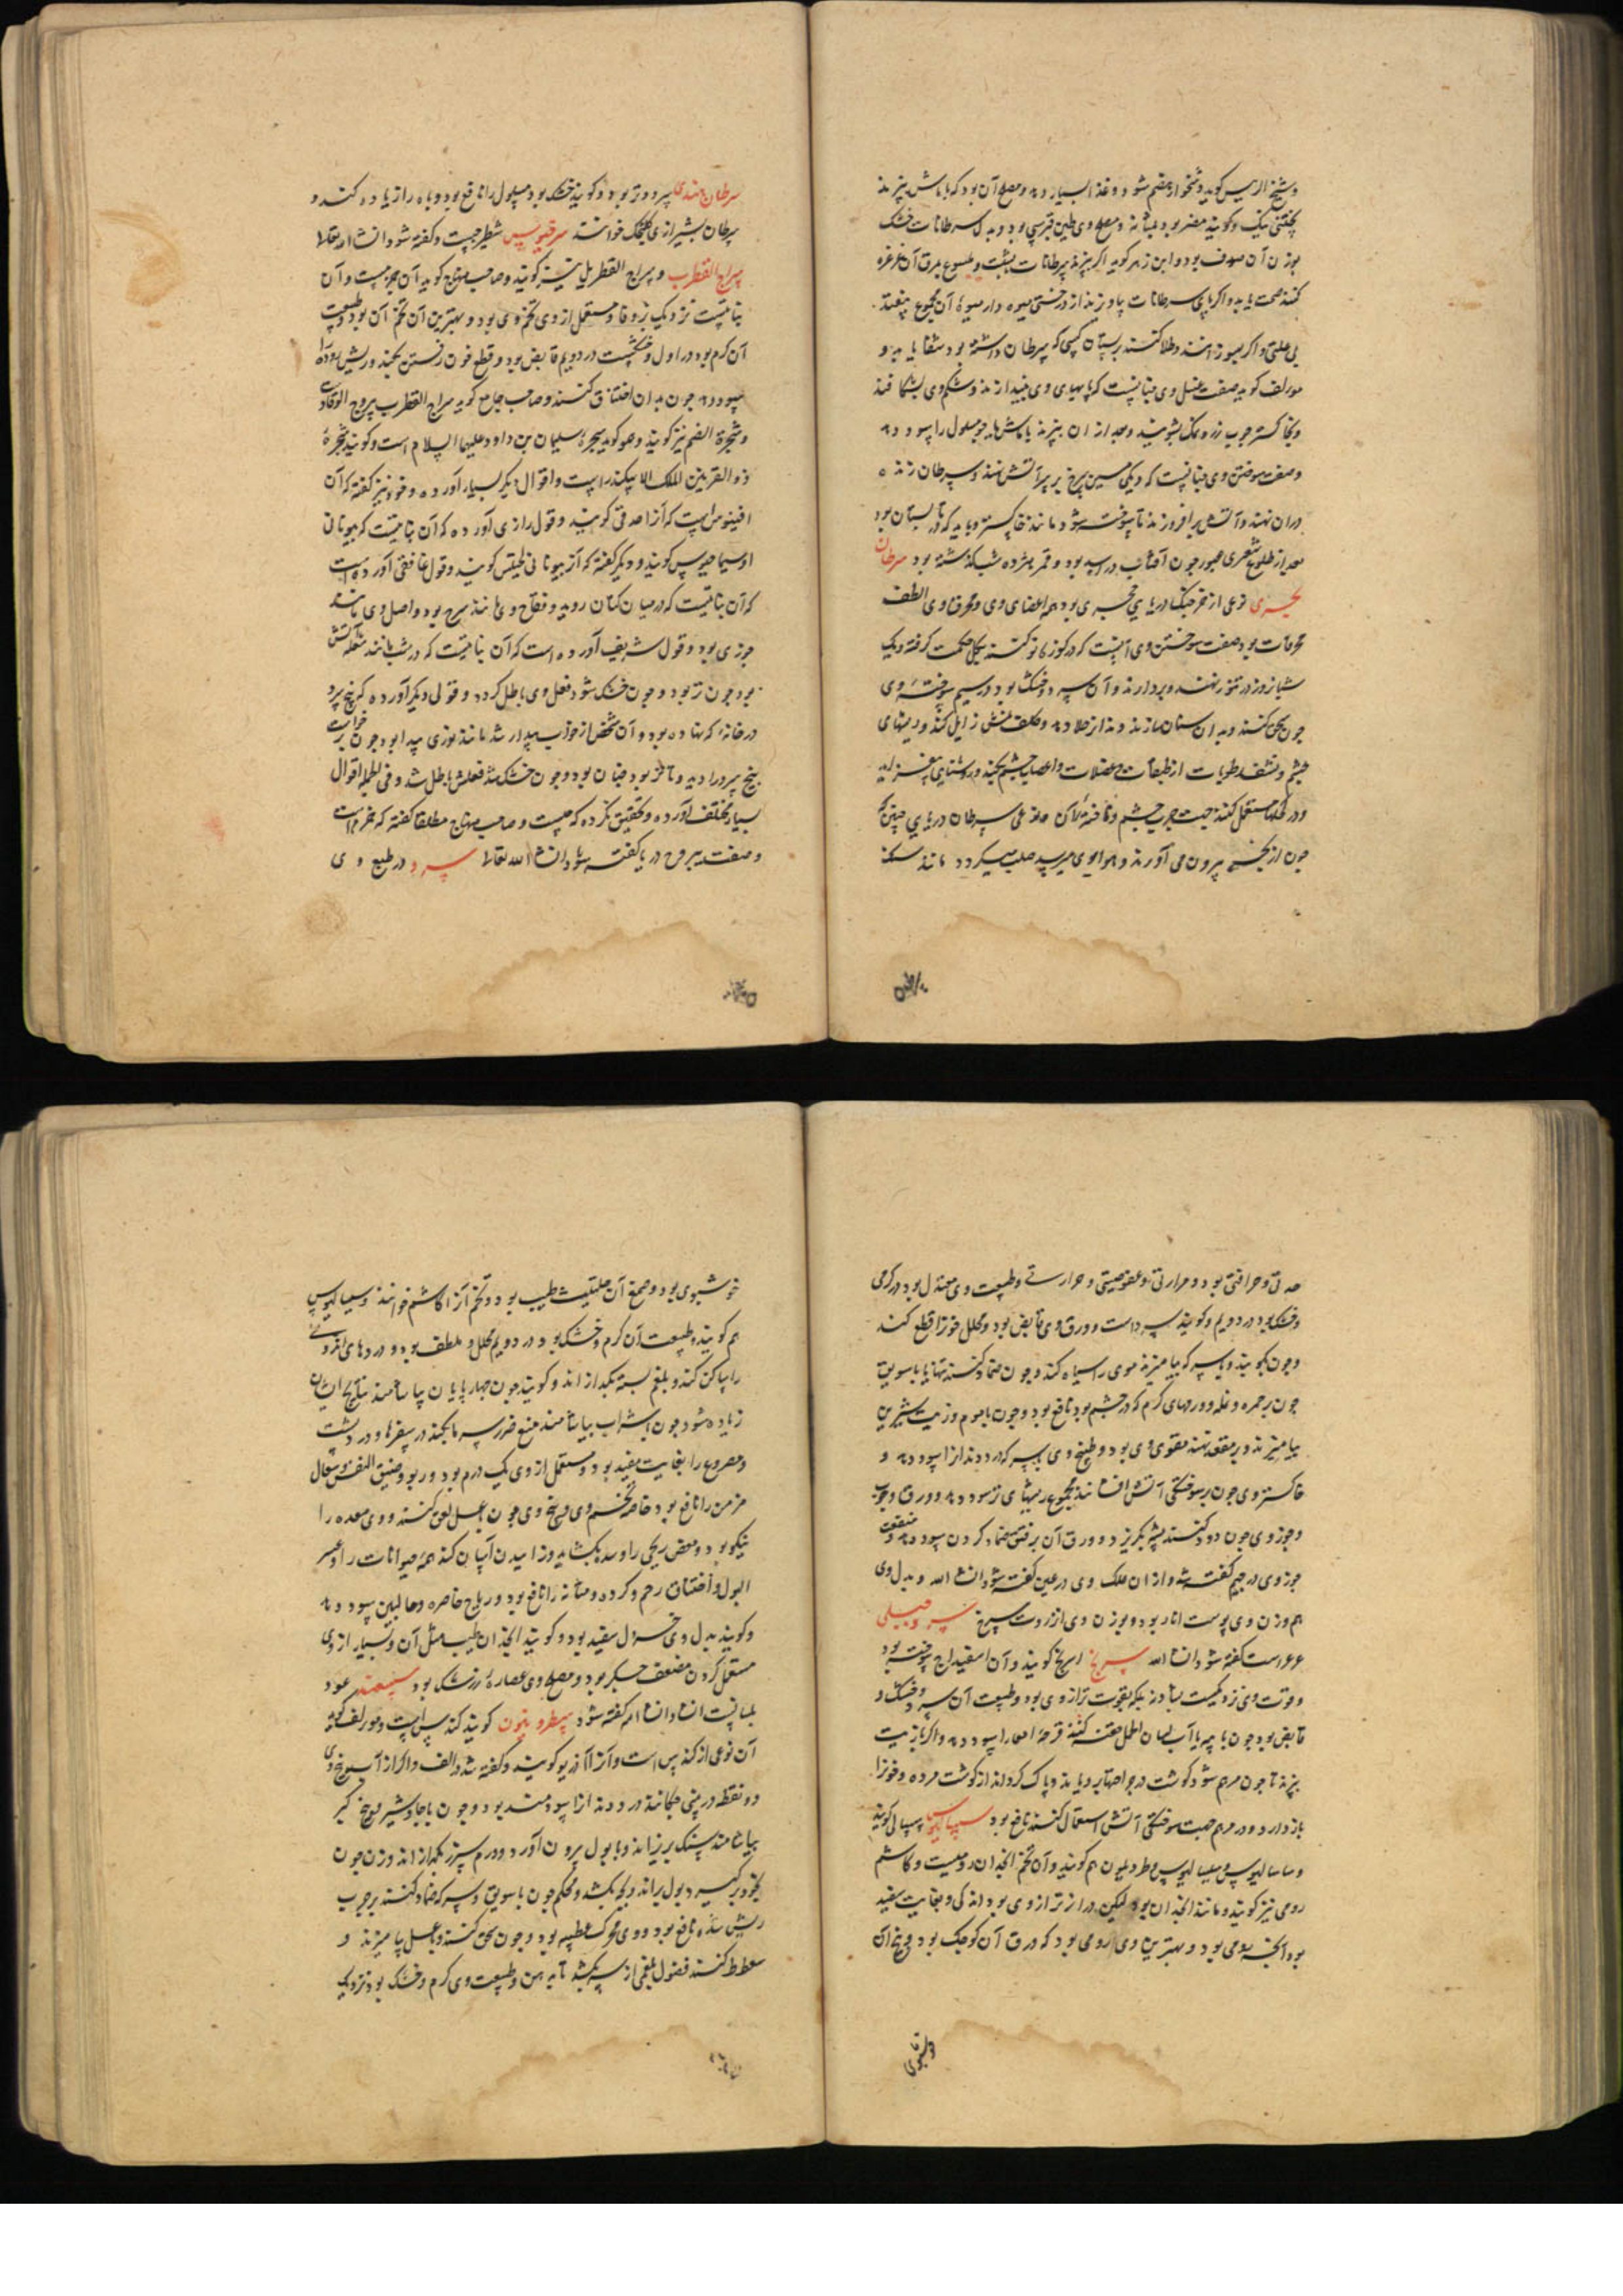 و شیخ الرییس کوید و شخوار هضم شود و غذا بسیار دهد و مصلح آن بود که با ماش بپزند
پختنی نیک و کویند مضر بود بمثانه و مصلح وی طین قبرسی بود و بدل سرطانات خشک
بوزن آن صدف بود و ابن زهر کوید اکر بپزند سرطانات بشبت و ملسوع بمرق آن غرغره
کند صحت یابد و اکر پای سرطانات بیاویزند از درختی میوه دار میوهٔ آن مجموع بیفتد
بی علتی و اکر بسوزانند و طلا کنند بر پستان کسی که سرطان داشته بود شفا یابد و
مولف کوید صفت غسل وی چنانست که پایهای وی بیندازند و شکم وی بشکافند
و بخاکستر چوب رز و نمک بشویند و بعد از ان بپزند با ماش یا جو مسلول را سود دهد
و صفت سوختن وی چنانست که دیکی مسین سرخ بر سر آتش نهند و سرطان زنده
در ان نهند و آتش برافروزند تا سوخته شود مانند خاکستر و باید که در تابستان بود
بعد از طلوع شعری عبور چون آفتاب در اسد بود و قمر هژده شب کذشته بود سرطان
بحری نوعی از خرچنک دریایی حجری بود همه اعضای وی و محرق وی الطف
محرقات بود و صفت سوختن وی آنست که در کوزهٔ نو کنند بکل حکمت کرفته و یک
شبانروز در تنور نهند و بردارند و آن سرد و خشک بود در سیم سوختهٔ وی
چون سحق کنند و بدان سنان سازند دندانرا جلا دهد و کلف و نمش زایل کند و ریشهای
چشم و نشف رطوبات از طبقات و عضلات و اعصاب چشم بکند و روشنایی بیفزاید
و در کحلها مستعمل کنند جهت جرب چشم و ناخنه الان حافه علی سرطان دریایی چینی که
چون از بحر بیرون می آورند و هوا بوی میرسد صلب میکردد مانند سنک
سرطان هندی سرد و تر بود و کویند خشک بود مسلول را نافع بود و باه را زیاده کند و
سرطان بشیرازی کلنجک خوانند سرقنوس شطرحبست و کفته شود انشا الله تعالی
سراج القطرب و سراج القطربل نیز کویند و صاحب منهاج کوید آن بیروجست و آن
نباتیست نزدیک بزوفا و مستعمل از وی تخم وی بود و بهترین آن تخم آن بود و طبیعت
آن کرم بود در اول و خشکست در دویم قابض بود و قطع خون رفتن بکند و ریش روده را
سود دهد چون بدان احتقان کنند و صاحب جامع کوید سراج القطرب بیروح الوقاد
و شجرة الصنم نیز کویند و هو کوید شجرهٔ سلیمان بن داود علیهما السلام است و کویند شجرهٔ
ذو القرنین الملک الاسکندراست و اقوال دیکر بسیار آورده و خود نیز کفته که آن
افینوس است که آنرا صدفی کویند و قول رازی آورده که آن نباتیست که بیونانی
اوسیماخیوس کویند و دیکر کفته که آنرا بیونانی لخیتس کویند و قول غافقی آورده است
که آن نباتیست که در میان کتان روید و فقاح وی مانند سرخ بود و اصل وی مانند
جوزی بود و قول شریف آورده است که آن نباتیست که در شب مانند شعله آتش
بود چون تر بود و چون خشک شود فعل وی باطل کردد و قولی دیکر آورده که بیخ یبروح
در خانهٔ که نهاده بود و آن شخص از خواب بیدار شد مانند نوری پیدا بود چون برخواست
بیخ یبروح را دید و تا تر بود چنان بود و چون خشک شد فعلش باطل شد و فی الجمله اقوال
بسیار مختلف آورده و تحقیق نکرده که چیست و صاحب منهاج مطلقا کفته که بیروح است
و صفت یبروح در یا کفته شود انشا الله تعالی سرو در طبع وی
حدتی و حرافتی بود و مرارتی و عفوصتی و حرارتی و طبیعت وی معتدل بود در کرمی
و خشک بود در دویم و کویند سرد است و ورق وی قابض بود و محلل خونرا قطع کند
و چون بکوبند و با سرکه بیامیزند موی را سیاه کند و چون ضماد کنند تنها یا با سویق
چون بر حمره و نمله و ورمهای کرم که در چشم بود نافع بود و چون با موم و زیت شیرین
بیامیزند و بر معده نهند مقوی وی بود و طبیخ وی بسرکه درد دندانرا سود دهد و
خاکستر وی چون بر سوختکی آتش افشانند و مجموع ریشهای تر سود دهد و ورق و چوب
و جوز وی چون دود کنند پشه بکریزد و ورق آن بر فتق ضماد کردن سود دهد و منفعت
جوز وی در جیم کفته شد و از ان علک وی در عین کفته شود انشا الله و بدل وی
هم وزن وی پوست انار بود و بوزن وی انزروت سرخ سرو جبلی
عرعر است کفته شود انشا الله سرنج اسرنج کویند و آن اسفیداج سوخته بود
و قوت وی نزدیکست بشادنه بلکه بقوت تر از وی بود و طبیعت آن سرد و خشک و
قابض بود چون با سپر یا آب لسان الحمل حقنه کنند قرحهٔ امعا را سود دهد و اکر با زیت
بپزند تا چون مرهم شود کوشت در جراحتها برویاند و پاک کرداند از کوشت مرده و خونرا
باز دارد و در مرهم جهت سوختکی آتش استعمال کنند نافع بود سیسالیوس سیسالی کویند
و ساسالیوس و سیسالیوس و طردیلون هم کویند و آن تخم انجدان رومیست و کاشم
رومی نیز کویند و مانند انجدان بود لیکن درازتر از وی بود اندکی و بغایت سفید
بود آنچه رومی بود و بهترین وی رومی بود که ورق آن کوچک بود و بیخ آن
و خوشبوی
خوشبوی بود و صمغ آن حلتیت طیب بود و تخم آنرا کاشم خوانند و سیسالیوس
هم کویند و طبیعت آن کرم و خشک بود در دویم محلل و ملطف بود و دردهای اندرونی
را ساکن کند و بلغم بسته بکدازاند و کویند چون چهارپایان بیاشامند نتایج ایشان
زیاده شود چون با شراب بیاشامند منع ضرر سرما بکند در سفرها و درد پشت
و مصروع را بغایت مفید بود و مستعمل از وی یک درم بود و ربو و ضیق النفس و سعال
مزمن را نافع بود خاصه تخم وی و بیخ وی چون بعسل لعق کنند و وی معده را
نیکو بود و مغص ریحی را و سده بکشاید و زاییدن آسان کند همه حیوانات را و عسر
البول و اختناق رحم و کرده و مثانه را نافع بود و ریاح خاصره و حالبین سود دهد
و کویند بدل وی خردل سفید بود و کویند انجدان طیب مثل آن و بسیار از وی
مستعمل کردن مضعف جکر بود و مصلح وی عصارهٔ زرشک بود سیسنبر عود
بلسانست انشا الله کفته شود سطرونیون کویند کندس است و مولف کوید
آن نوعی از کندس است و آنرا آذریو کویند و کفته شد در الف و اکر از آب بیخ وی
دو نقطه در بینی چکانند درد دندانرا سودمند بود و چون با جاوشیر و بیخ کبر
بیاشامند سنک بریزاند و با بول بیرون آورد و ورم سپرز بکدازاند و زن چون
بخود برکیرد بول براند و بچه بکشد و محکم چون با سویق و سرکه ضماد کنند بر جرب
ریش شده نافع بود و وی محرک عطسه بود و چون سحق کنند و بعسل بیامیزند و
سعوط کنند فضول بلغمی از سر بکشد تا بدهن و طبیعت وی کرم و خشک بود نزدیک